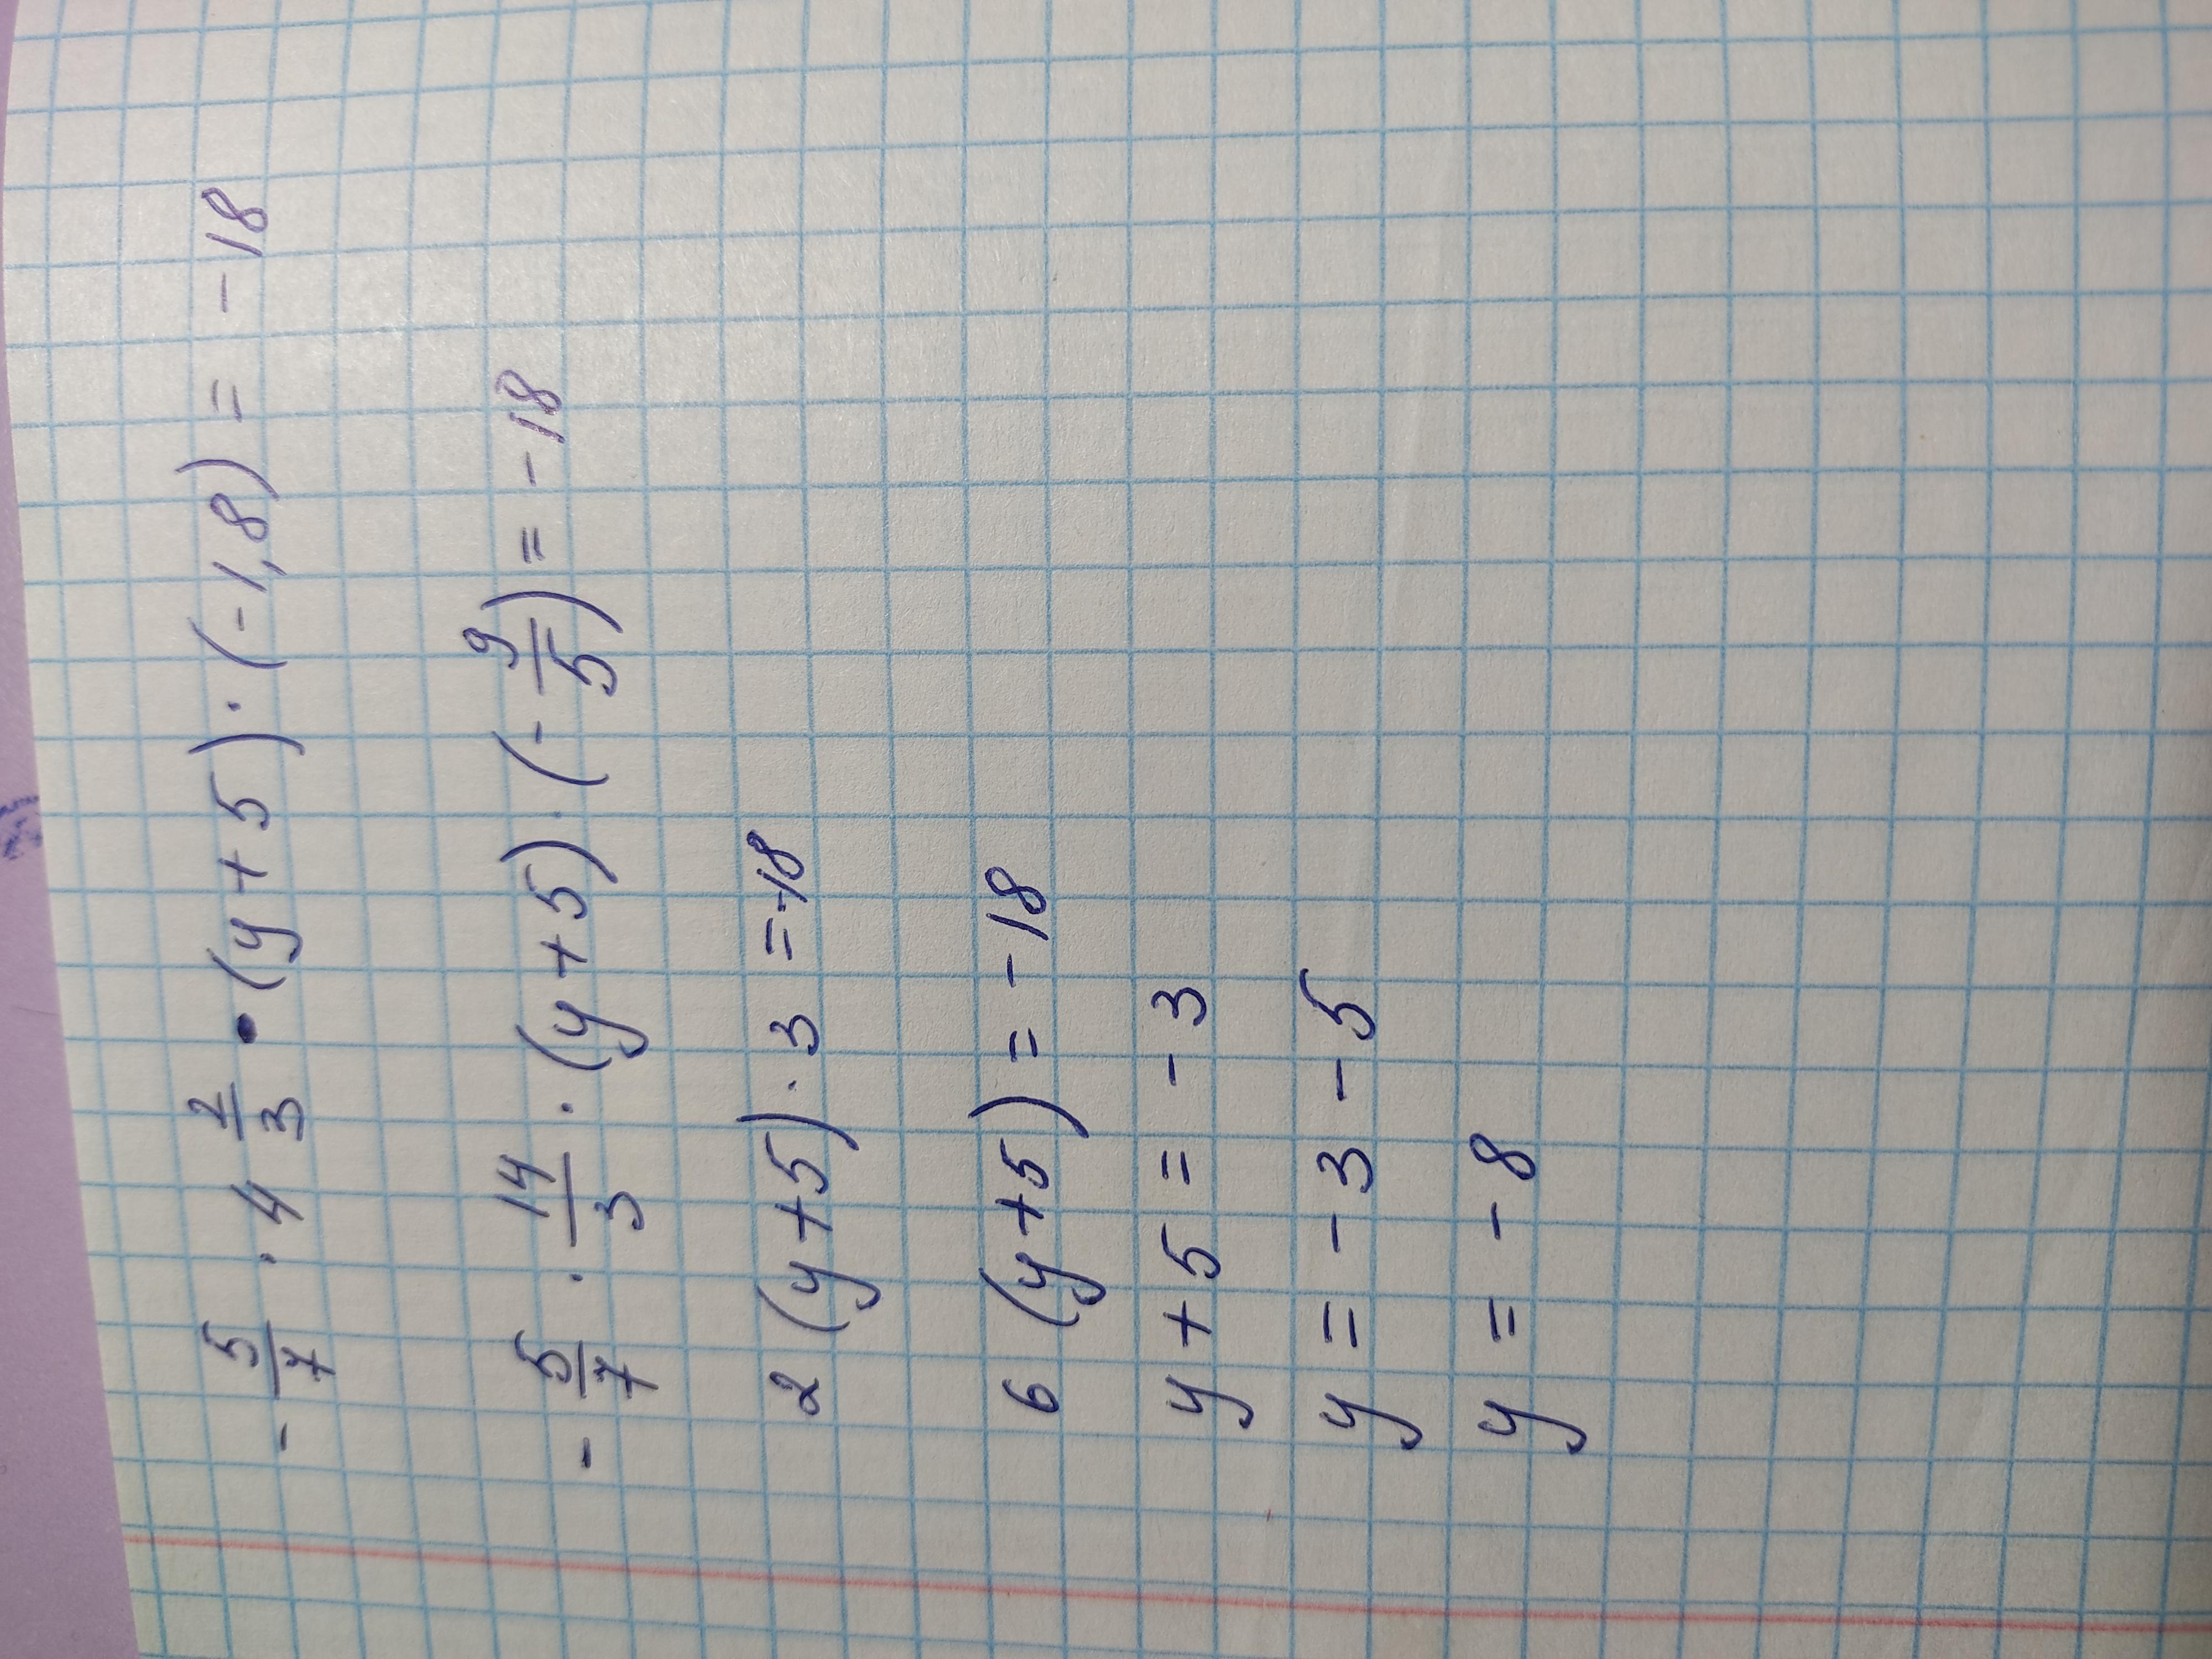 - 5/7 · 4 2/3 · (y + 5) · (-1,8) = -18
- 5/7 · 14/3 · (y + 5) · (- 9/5) = -18
2 (y + 5) · 3 = -18
6 (y + 5) = -18
y + 5 = -3
y = -3 - 5
y = -8